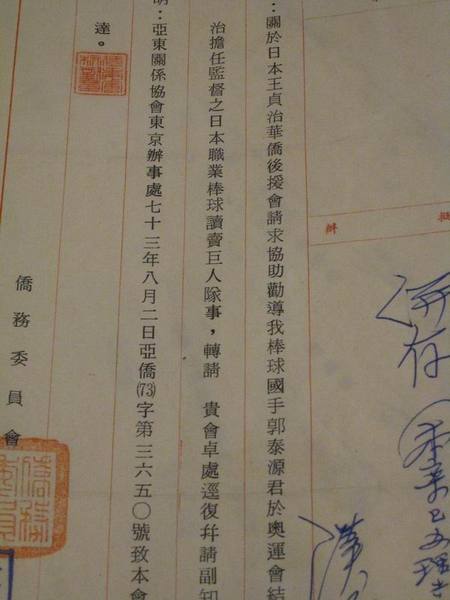 辦
併存
：關於日本王貞治華僑後援會請求協助勸導我棒球國手郭泰源君於奧運會結
治擔任監督之日本職業棒球讀賣巨人隊事，轉請　貴會卓處逕復并請副知
明：亞東關係協會東京辦事處七十三年八月二日亞僑(73)字第三六五〇號致本會
達。
僑務委員會